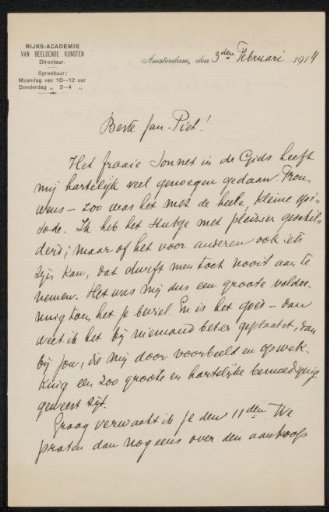 RIJKS-ACADEMIE
VAN BEELDENDE KUNSTEN
Directeur.
Spreekuur:
Maandag van 10—12 uur
Donderdag „ 2—4 „
Amsterdam, den 3den Februari 1914
Beste Jan-Piet!
Het fraaie Sonnet in de Gids heeft
mij hartelijk veel genoegen gedaan Trou-
wens — zoo was het met de heele, kleine epi-
sode. Ik heb het Hutje met pleizier geschil-
derd; maar of het voor anderen ook iets
zijn kan, dat durft men toch nooit aan te
nemen. Het was mij dus een groote voldoe-
ning toen het je beviel. En is het goed — dan
weet ik het bij niemand beter geplaatst, dan
bij jou, die mij door voorbeeld en opwek-
king een zoo groote en hartelijke bemoediging
geweest zijt.
Graag verwacht ik je den 11den We
praten dan nog eens over den aankoop